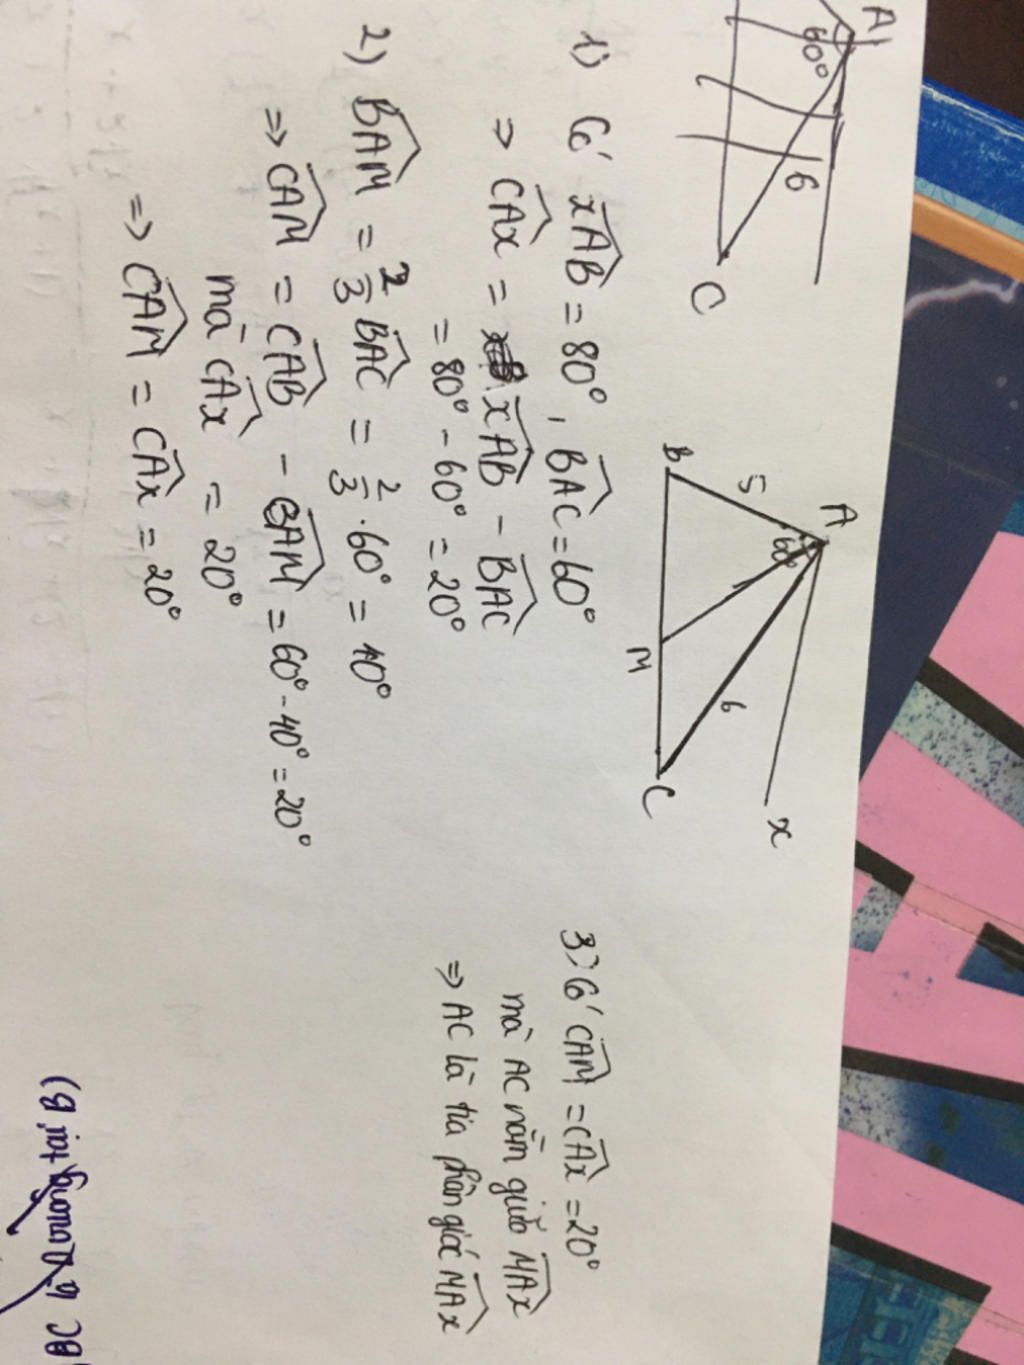 A
60°
6
C
A
5
60°
B
M
6
C
x
1) Có xAB = 80°, BAC = 60°
⇒ CAx = xAB - BAC
= 80° - 60° = 20°
2) BAM = 2/3 BAC = 2/3 . 60° = 40°
⇒ CAM = CAB - BAM = 60° - 40° = 20°
mà CAx = 20°
⇒ CAM = CAx = 20°
3) Có CAM = CAx = 20°
mà AC nằm giữa MAx
⇒ AC là tia phân giác MAx
tại B)